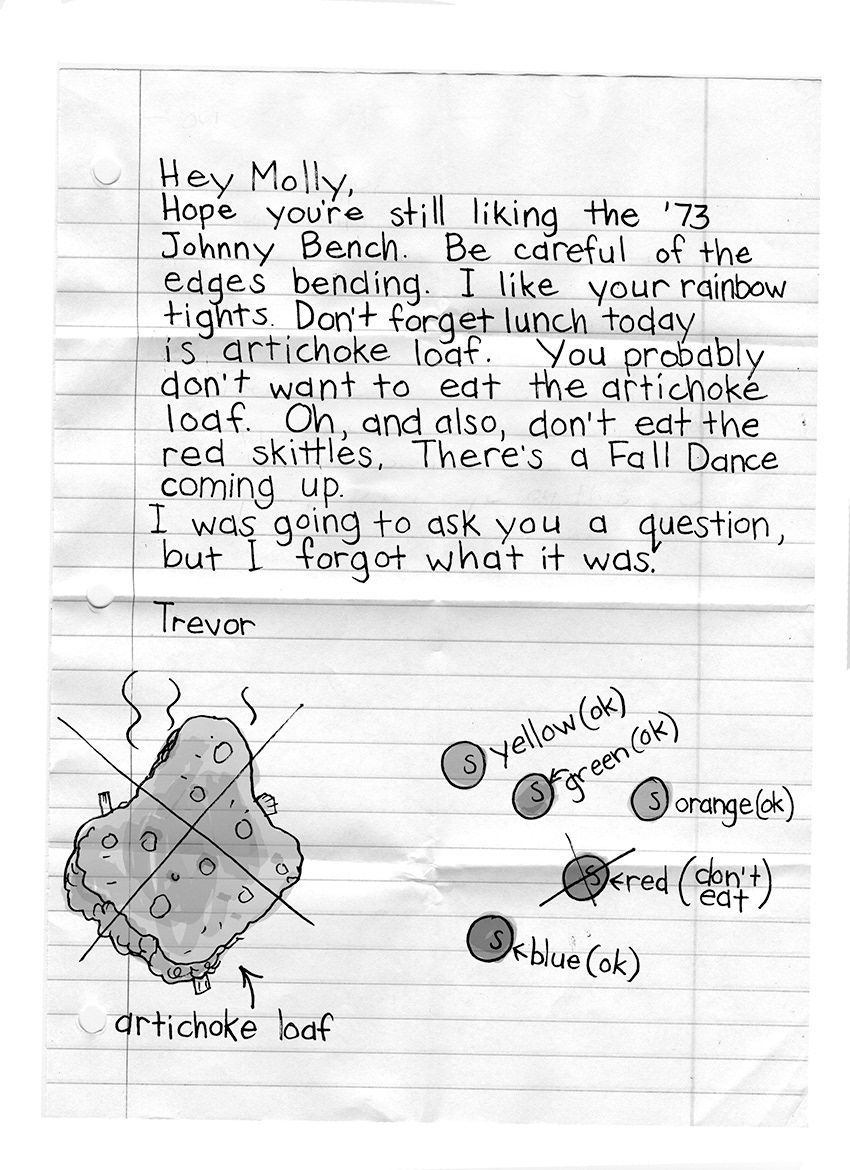 Hey Molly,
Hope you're still liking the '73
Johnny Bench. Be careful of the
edges bending. I like your rainbow
tights. Don't forget lunch today
is artichoke loaf. You probably
don't want to eat the artichoke
loaf. Oh, and also, don't eat the
red skittles, There's a Fall Dance
coming up.
I was going to ask you a question,
but I forgot what it was.
Trevor
S yellow (ok)
S green (ok)
S orange (ok)
S red (don't
eat)
S blue (ok)
artichoke loaf